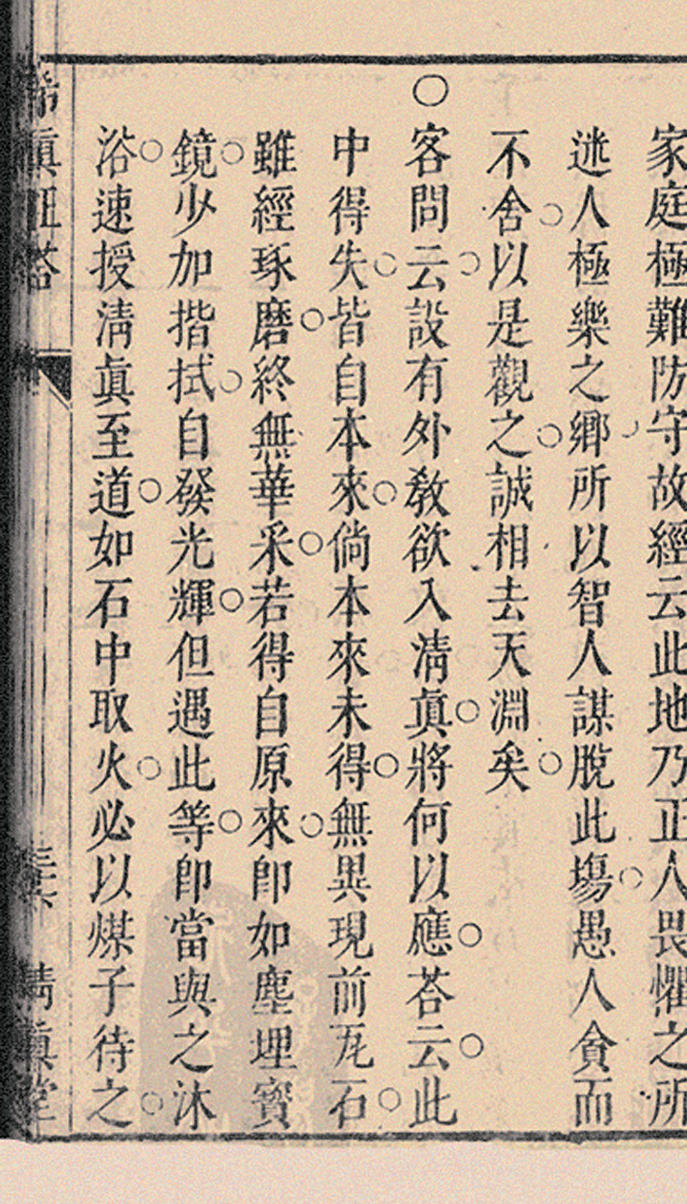 家庭極難防守故經云此地乃正人畏懼之所
迯人極樂之鄉所以智人謀脫此塲愚人貪而
不舍以是觀之誠相去天淵矣
○客問云設有外敎欲入清眞將何以應荅云此
中得失皆自本來倘本來未得無異現前瓦石
雖經琢磨終無華采若得自原來卽如塵埋寳
鏡少加揩拭自發光輝但遇此等卽當與之沐
浴速授清眞至道如石中取火必以煤子待之
希眞正荅
清眞堂